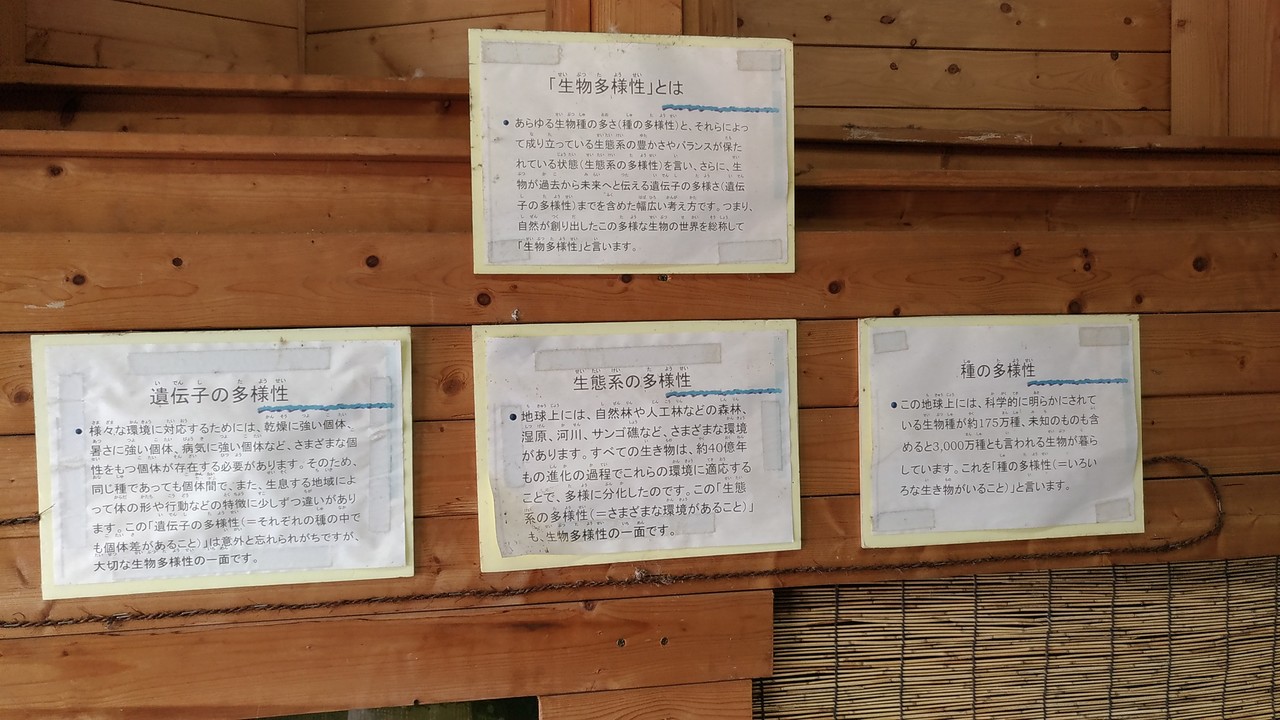 「生物多様性」とは
●あらゆる生物種の多さ(種の多様性)と、それらによっ
て成り立っている生態系の豊かさやバランスが保た
れている状態(生態系の多様性)を言い、さらに、生
物が過去から未来へと伝える遺伝子の多様さ(遺伝
子の多様性)までを含めた幅広い考え方です。つまり、
自然が創り出したこの多様な生物の世界を総称して
「生物多様性」と言います。
遺伝子の多様性
●様々な環境に対応するためには、乾燥に強い個体、
暑さに強い個体、病気に強い個体など、さまざまな個
性をもつ個体が存在する必要があります。そのため、
同じ種であっても個体間で、また、生息する地域によ
って体の形や行動などの特徴に少しずつ違いがあり
ます。この「遺伝子の多様性(=それぞれの種の中で
も個体差があること)」は意外と忘れられがちですが、
大切な生物多様性の一面です。
生態系の多様性
●地球上には、自然林や人工林などの森林、
湿原、河川、サンゴ礁など、さまざまな環境
があります。すべての生き物は、約40億年
もの進化の過程でこれらの環境に適応する
ことで、多様に分化したのです。この「生態
系の多様性(=さまざまな環境があること)」
も、生物多様性の一面です。
種の多様性
●この地球上には、科学的に明らかにされて
いる生物種が約175万種、未知のものも含
めると3,000万種とも言われる生物が暮ら
しています。これを「種の多様性(=いろい
ろな生き物がいること)」と言います。